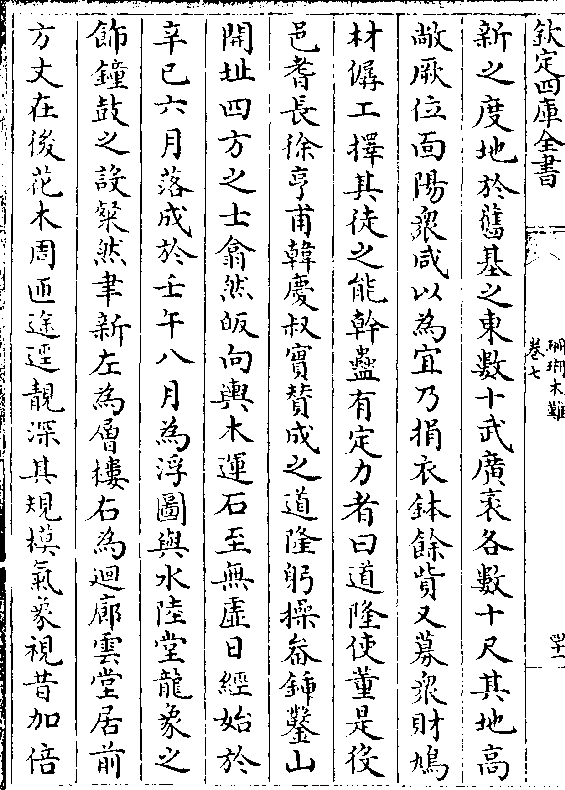 欽定四庫全書
珊瑚木難
卷七
四十一
新之度地於舊基之東數十武廣袤各數十尺其地高
敞厥位面陽衆咸以為宜乃捐衣鉢餘貲又募衆財鳩
材僝工擇其徒之能幹蠱有定力者曰道隆使董是役
邑耆長徐亨甫韓慶叔實賛成之道隆躬操畚鍤鑿山
開址四方之士翕然皈向輿木運石至無虛日經始於
辛巳六月落成於壬午八月為浮圖與水陸堂龍象之
飾鐘鼓之設粲然聿新左為層樓右為迴廊雲堂居前
方丈在後花木周匝途逕靚深其規模氣象視昔加倍